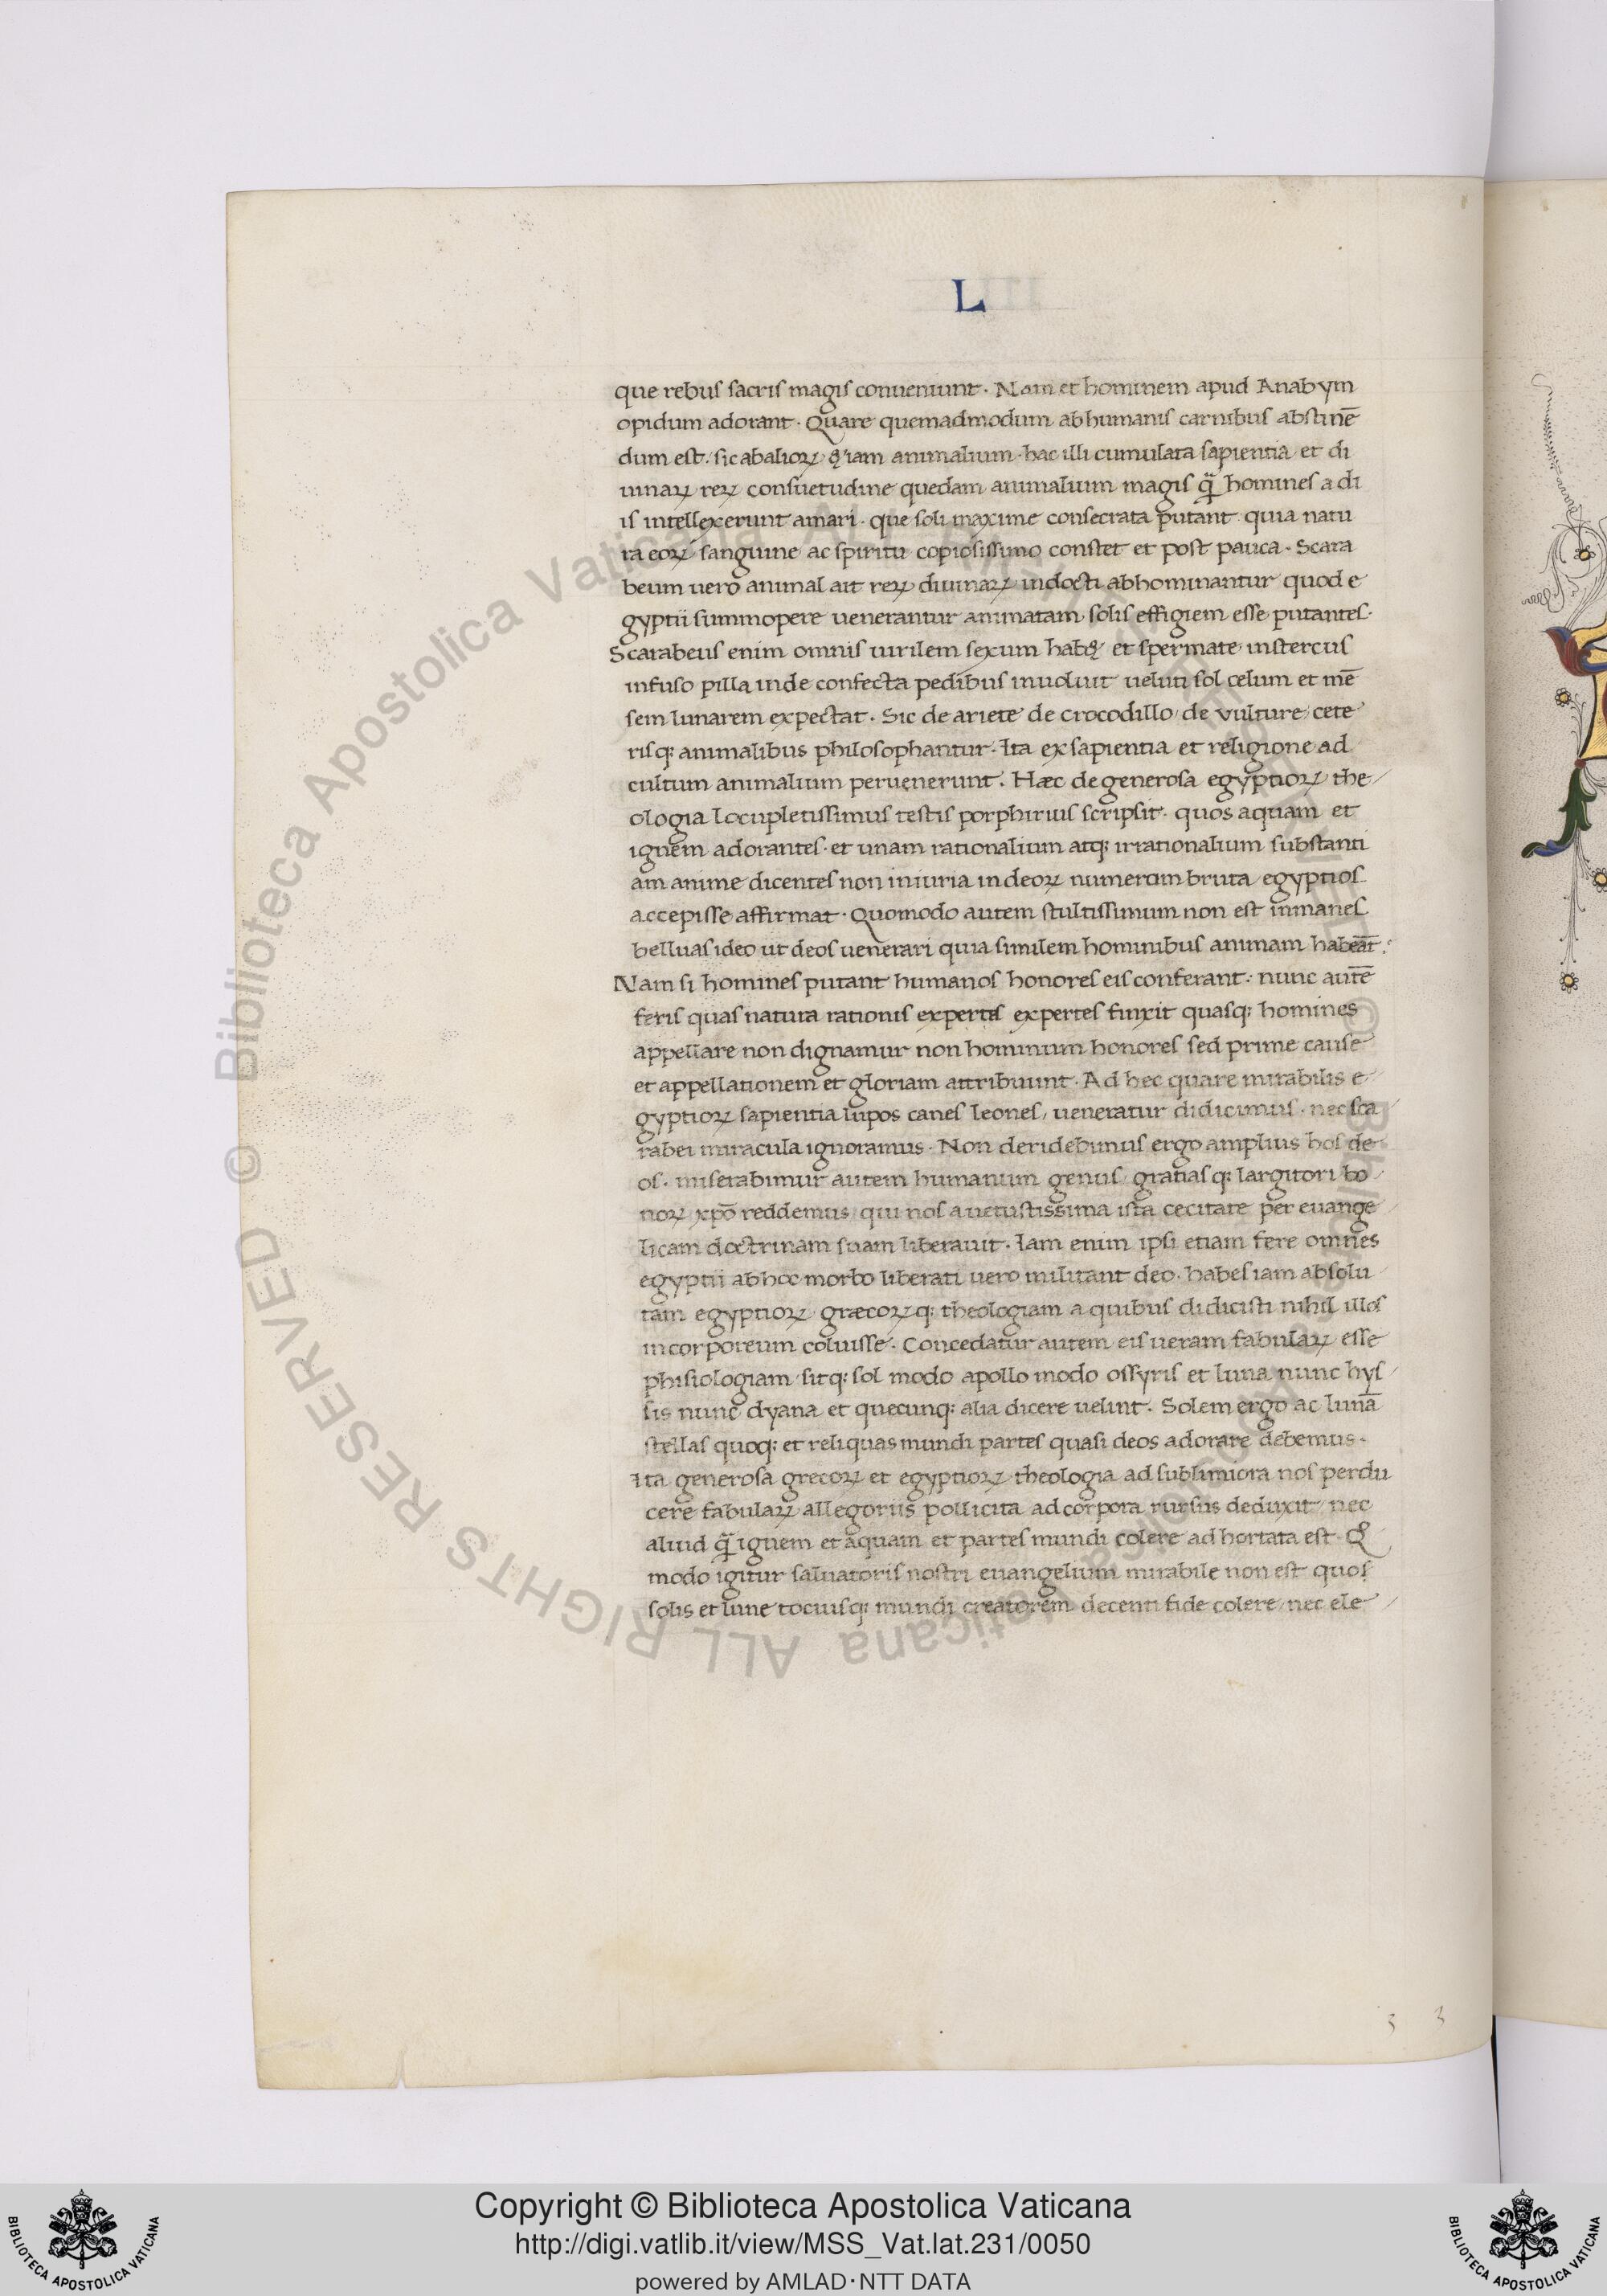 L
que rebus sacris magis conueniunt · Nam et hominem apud Anabym
opidum adorant · Quare quemadmodum ab humanis carnibus abstinē
dum est · sic ab alioꝝ etiam animalium · hac illi cumulata sapientia et di
uinaꝝ reꝝ consuetudine quedam animalium magis q̄ homines a di
is intellexerunt amari · que soli maxime consecrata putant quia natu
ra eoꝝ sanguine ac spiritu copiosissimo constet et post pauca · Scara
beum uero animal ait reꝝ diuinaꝝ indocti abhominantur quod e
gyptii summopere uenerantur animatam solis effigiem esse putantes ·
Scarabeus enim omnis uirilem sexum habꝫ et spermate in stercus
infuso pilla inde confecta pedibus inuoluit ueluti sol celum et mē
sem lunarem expectat · Sic de ariete de crocodillo de vulture cete
risqꝫ animalibus philosophantur · Ita ex sapientia et religione ad
cultum animalium peruenerunt · Hæc de generosa egyptioꝝ the
ologia locupletissimus testis porphirius scripsit · quos aquam et
ignem adorantes · et unam rationalium atqꝫ irrationalium substanti
am anime dicentes non iniuria in deoꝝ numerum bruta egyptios
accepisse affirmat · Quomodo autem stultissimum non est inmanes
belluas ideo ut deos uenerari quia similem hominibus animam habeāt ·
Nam si homines putant humanos honores eis conferant · nunc autē
feris quas natura rationis expertes expertes finxit quasqꝫ homines
appellare non dignamur non hominum honores sed prime cause
et appellationem et gloriam attribuunt · Ad hec quare mirabilis e
gyptioꝝ sapientia lupos canes leones ueneratur didicimus · nec sca
rabei miracula ignoramus · Non deridebimus ergo amplius hos de
os · miserabimur autem humanum genus gratiasqꝫ largitori bo
noꝝ xp̄o reddemus qui nos a uetustissima ista cecitate per euange
licam doctrinam suam liberauit · Iam enim ipsi etiam fere omnes
egyptii ab hoc morbo liberati uero militant deo · habes iam absolu
tam egyptioꝝ græcoꝝqꝫ theologiam a quibus didicisti nihil illos
incorporeum coluisse · Concedatur autem eis ueram fabulaꝝ esse
phisiologiam sitqꝫ sol modo apollo modo ossyris et luna nunc hys
sis nunc dyana et quecunqꝫ alia dicere uelint · Solem ergo ac lunā
stellas quoqꝫ et reliquas mundi partes quasi deos adorare debemus ·
ita generosa grecoꝝ et egyptioꝝ theologia ad sublimiora nos perdu
cere fabulaꝝ allegoriis pollicita ad corpora rursus deduxit nec
aliud q̄ ignem et aquam et partes mundi colere ad hortata est · Qͦ
modo igitur saluatoris nostri euangelium mirabile non est quos
solis et lune tociusqꝫ mundi creatorem decenti fide colere nec ele
3 3
© Biblioteca Apostolica Vaticana ALL RIGHTS RESERVED
BIBLIOTECA APOSTOLICA VATICANA
Copyright © Biblioteca Apostolica Vaticana
http://digi.vatlib.it/view/MSS_Vat.lat.231/0050
powered by AMLAD·NTT DATA
BIBLIOTECA APOSTOLICA VATICANA